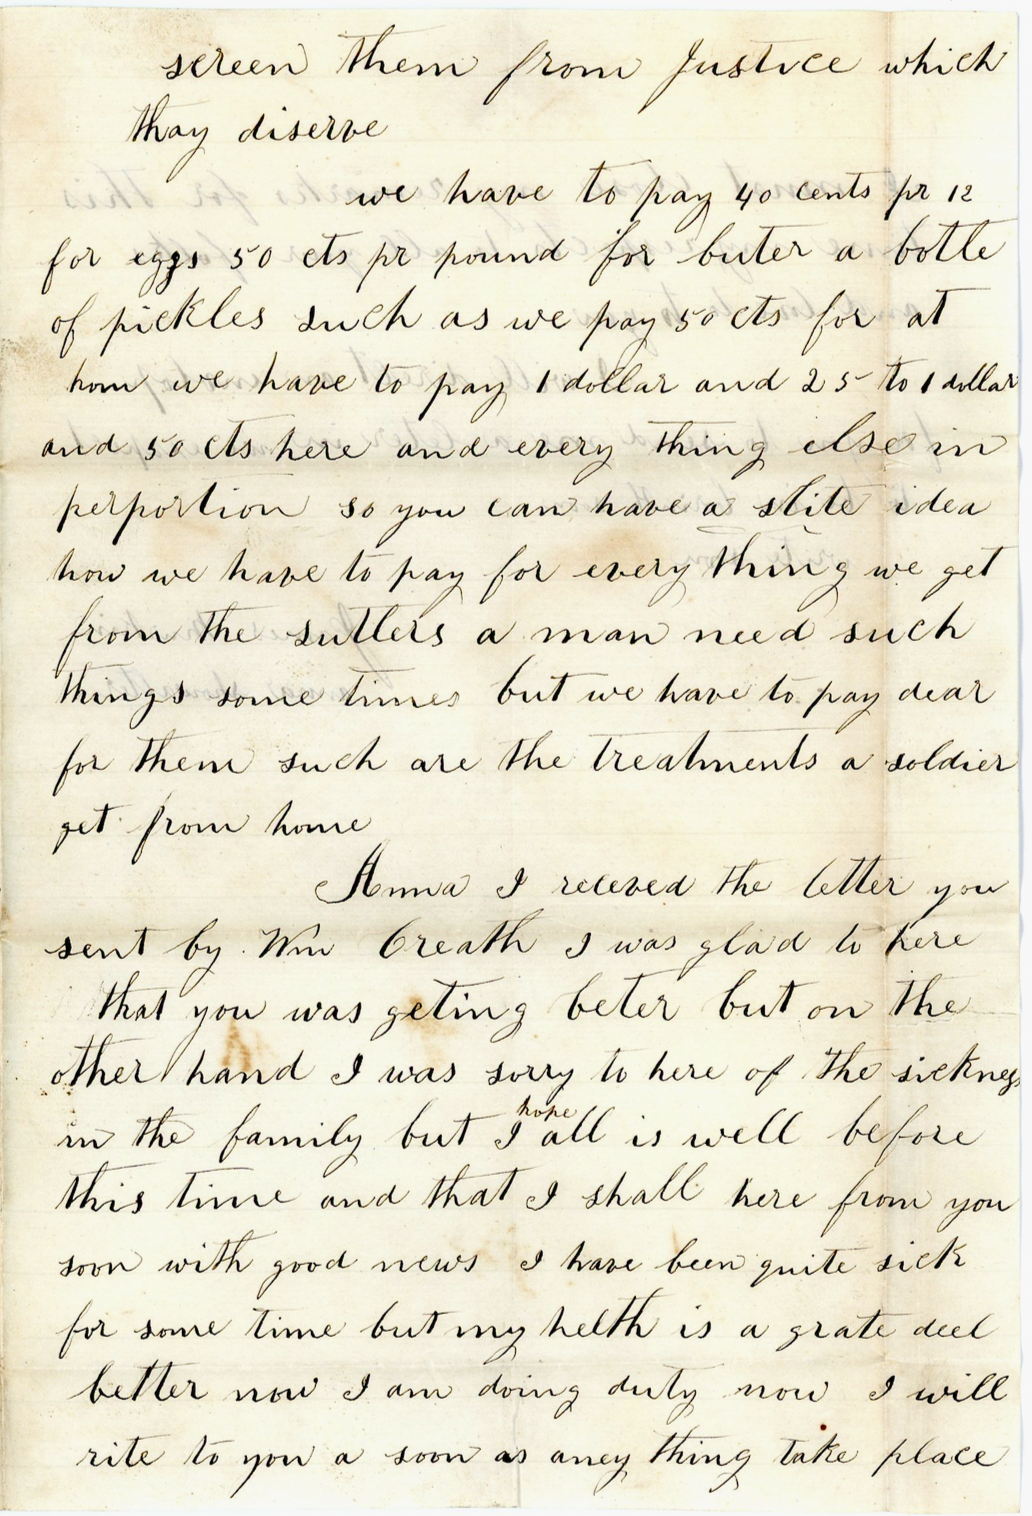 screen them from Justice which
thay diserve
we have to pay 40 cents pr 12
for eggs 50 cts pr pound for buter a botle
of pickles such as we pay 50 cts for at
hom we have to pay 1 dollar and 25 to 1 dollar
and 50 cts here and every thing else in
perportion so you can have a slite idea
how we have to pay for every thing we get
from the sutlers a man need such
things some times but we have to pay dear
for them such are the treatments a soldier
get from home
Anna I receved the letter you
sent by Wm Creath I was glad to here
that you was geting beter but on the
other hand I was sorry to here of the sickness
in the family but I hope all is well before
this time and that I shall here from you
soon with good news I have been quite sick
for some time but my helth is a grate deel
better now I am doing duty now I will
rite to you a soon as aney thing take place